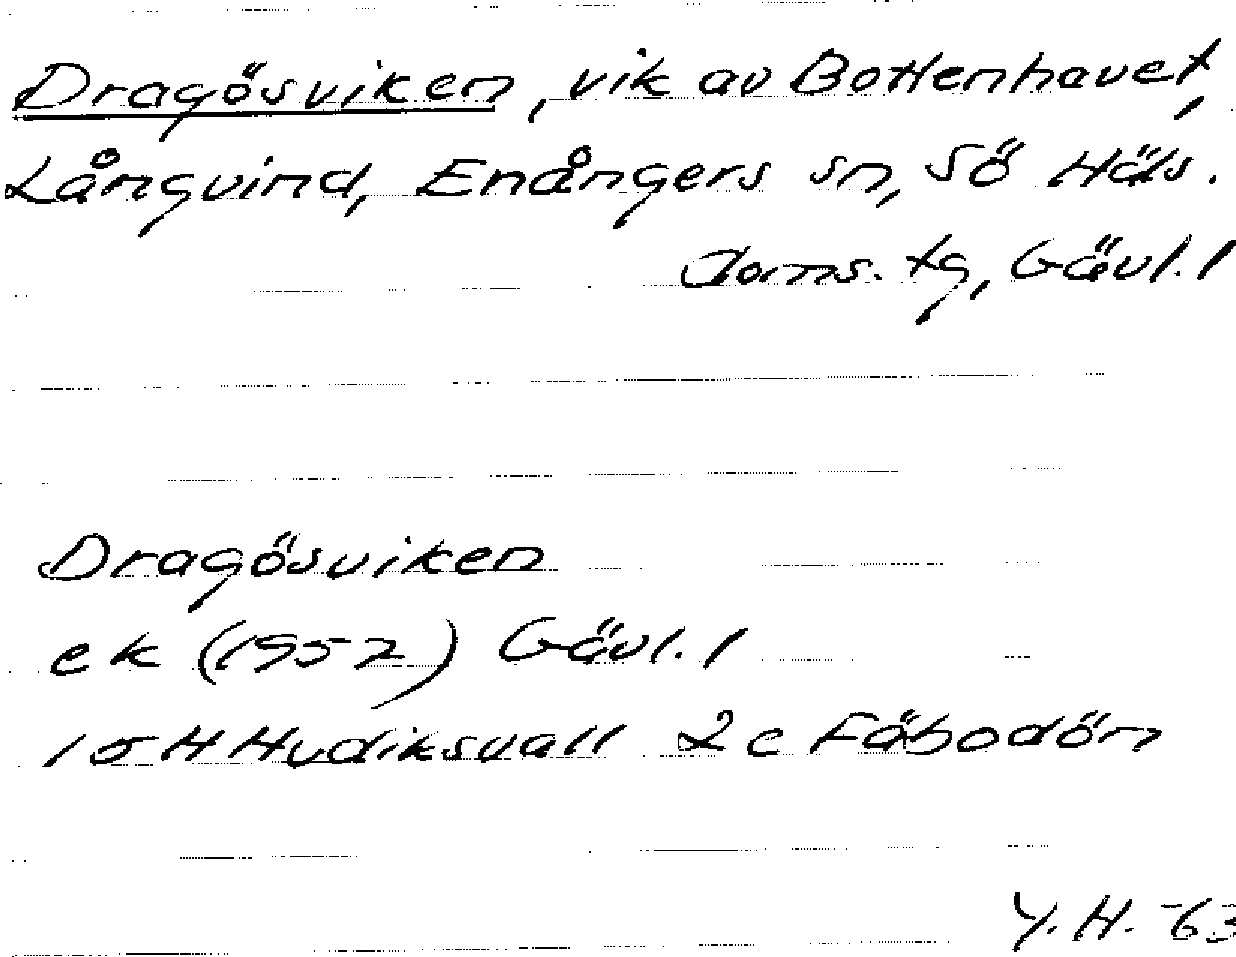 Dragösviken, vik av Bottenhavet,
Långvind, Enångers sn, Sö Häls.
doms. tg, Gävl. l
Dragösviken
ek (1952) Gävl. l
15 H Hudiksvall 2 c Fäbodön
Y. H. -63